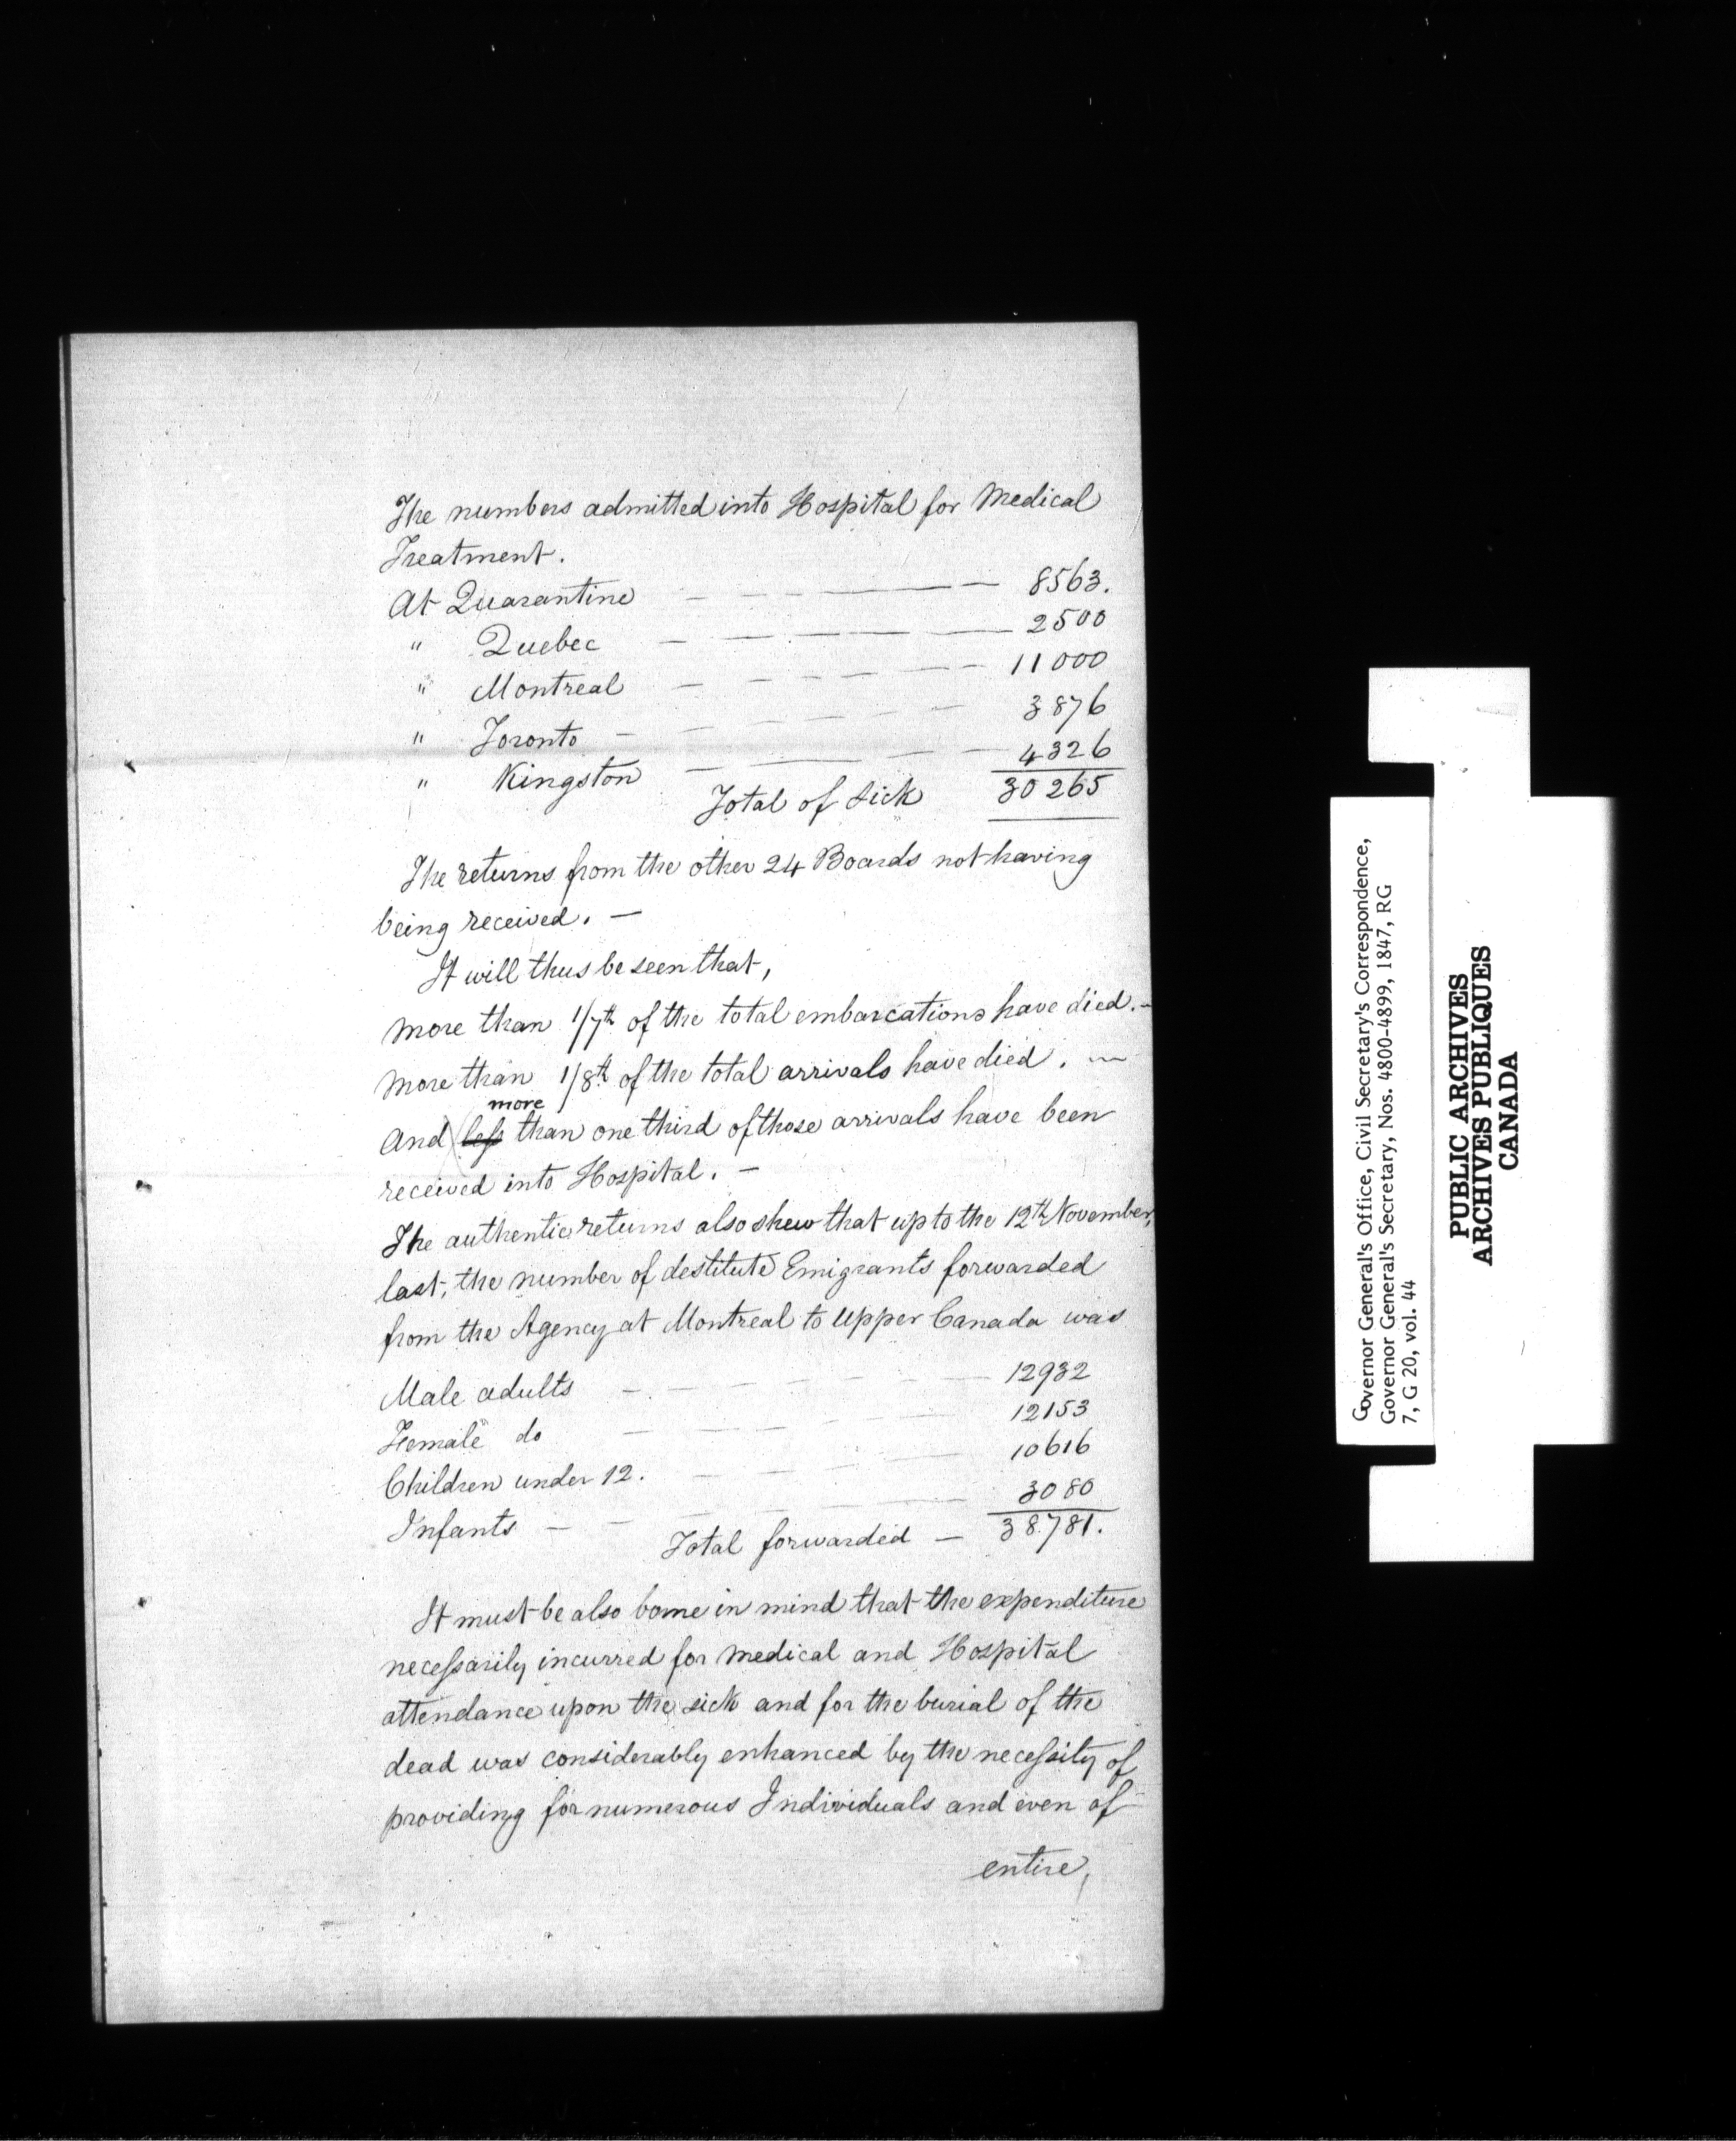 The numbers admitted into Hospital for Medical
Treatment.
At Quarantine — — — — — 8563.
" Quebec — — — — — 2500
" Montreal — — — — — 11000
" Toronto — — — — — 3876
" Kingston — — — — — 4326
Total of Sick 30265
The returns from the other 24 Boards not having
being received. —
It will thus be seen that,
more than 1/7th of the total embarcations have died. —
more than 1/8th of the total arrivals have died. —
more
And less than one third of those arrivals have been
received into Hospital. —
The authentic returns also shew that up to the 12th November,
last, the number of destitute Emigrants forwarded
from the Agency at Montreal to Upper Canada was
Male adults — — — — — 12932
Female do — — — — — 12153
Children under 12. — — — — 10616
Infants — — — — — 3080
Total forwarded — 38781.
It must be also borne in mind that the expenditure
necessarily incurred for medical and Hospital
attendance upon the sick and for the burial of the
dead was considerably enhanced by the necessity of
providing for numerous Individuals and even of
entire,
Governor General's Office, Civil Secretary's Correspondence,
Governor General's Secretary, Nos. 4800-4899, 1847, RG
7, G 20, vol. 44
PUBLIC ARCHIVES
ARCHIVES PUBLIQUES
CANADA